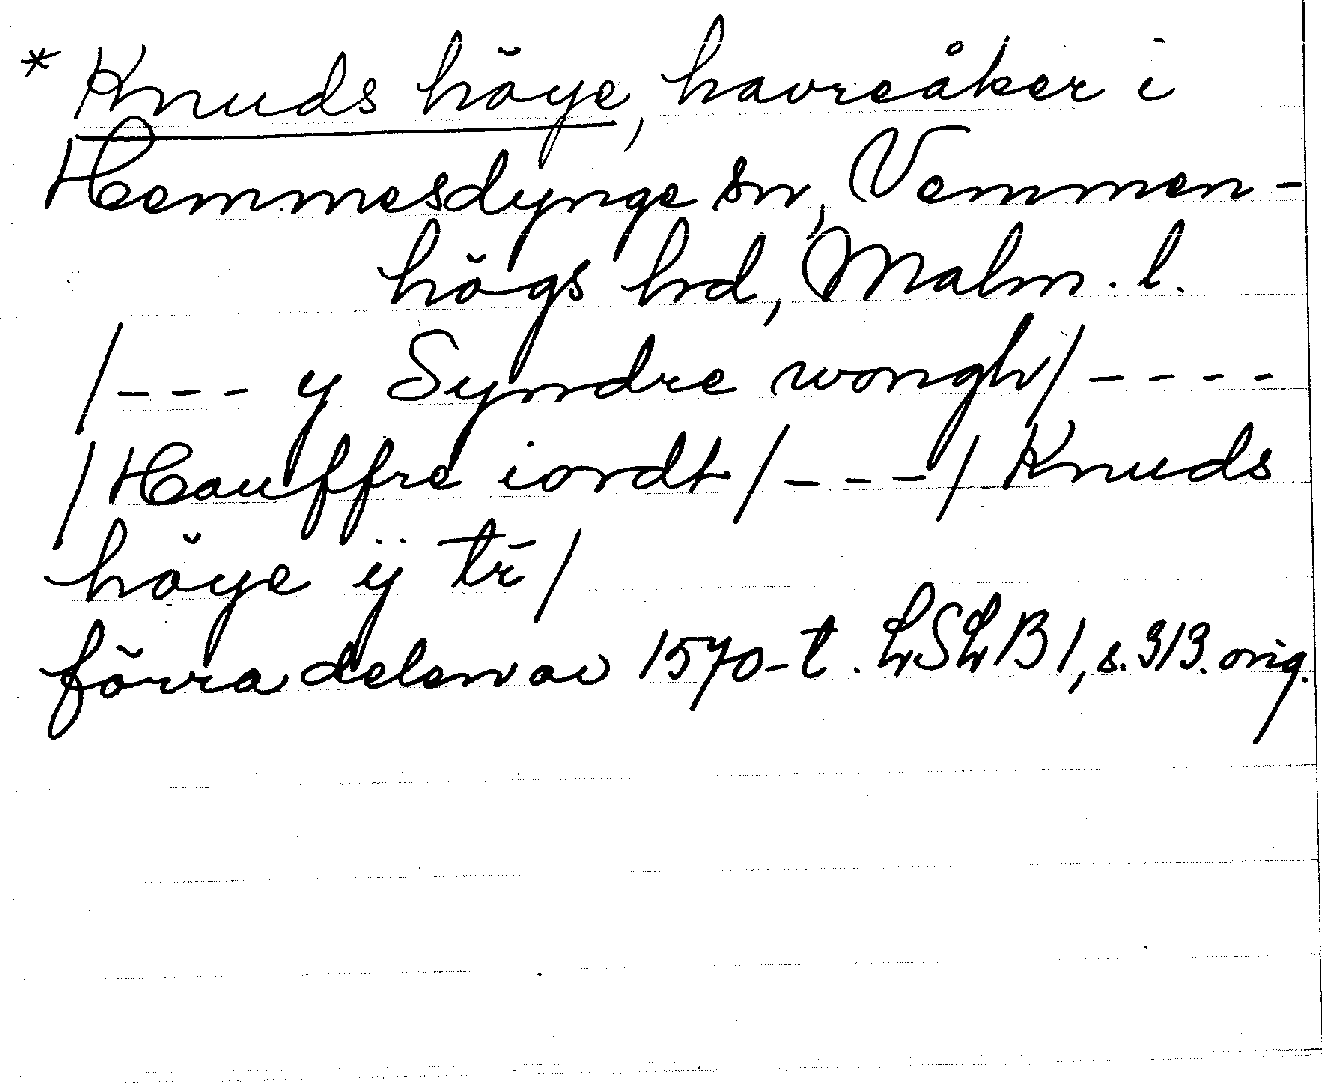 * Knuds höye, havreåker i
Hemmesdynge sn, Vemmen-
högs hd, Malm. l.
/--- y Syndre wongh/----
/Hauffre iordt/---/ Knuds
höye ÿ tr̄/
förra delen av 1570-t. LSLB 1, s. 313. orig.